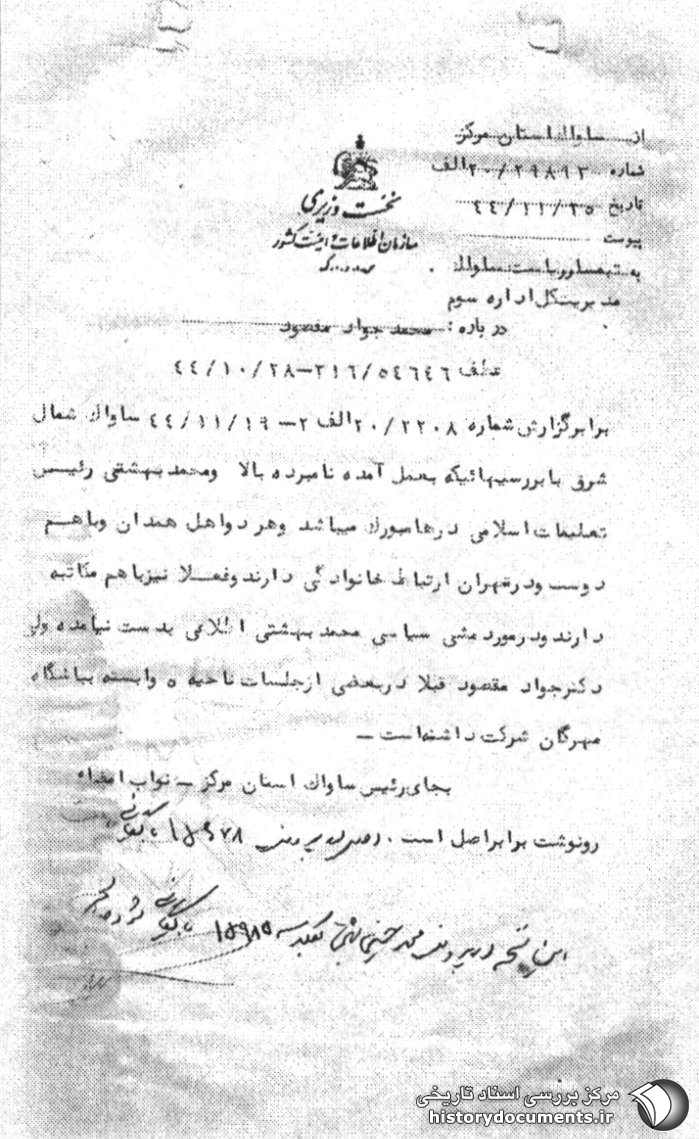 از ساواك استان مركز
شماره ۲۰/۲۹۸۹۳الف
تاریخ ۴۴/۱۱/۲۵
پیوست
به تیمسار ریاست ساواك
مدیریت كل اداره سوم
نخست وزیری
سازمان اطلاعات و امنیت كشور
درباره : محمد جواد مقصود
عطف ۳۱۶/۵۴۶۴۶–۴۴/۱۰/۲۸
برابر گزارش شماره ۲۰/۲۲۰۸الف ۲– ۴۴/۱۱/۱۹ ساواك شمال
شرق با بررسیهائیكه بعمل آمده نامبرده بالا ومحمد بهشتی رئیس
تعلیمات اسلامی در هامبورك میباشد وهر دو اهل همدان وباهم
دوست ودر تهران ارتباط خانوادگی دارند وفعلا نیز باهم مكاتبه
دارند ودر مورد مشی سیاسی محمد بهشتی اطلاعی بدست نیامده ولی
دكتر جواد مقصود قبلا در بعضی از جلسات ناحیه ۵ وابسته بباشگاه
مهرگان شركت داشته است –
بجای رئیس ساواك استان مركز – نواب امضاء
رونوشت برابر اصل است .
این نسخه در پرونده محمد حسینی بهشتی
مركز بررسی اسناد تاریخی
historydocuments.ir